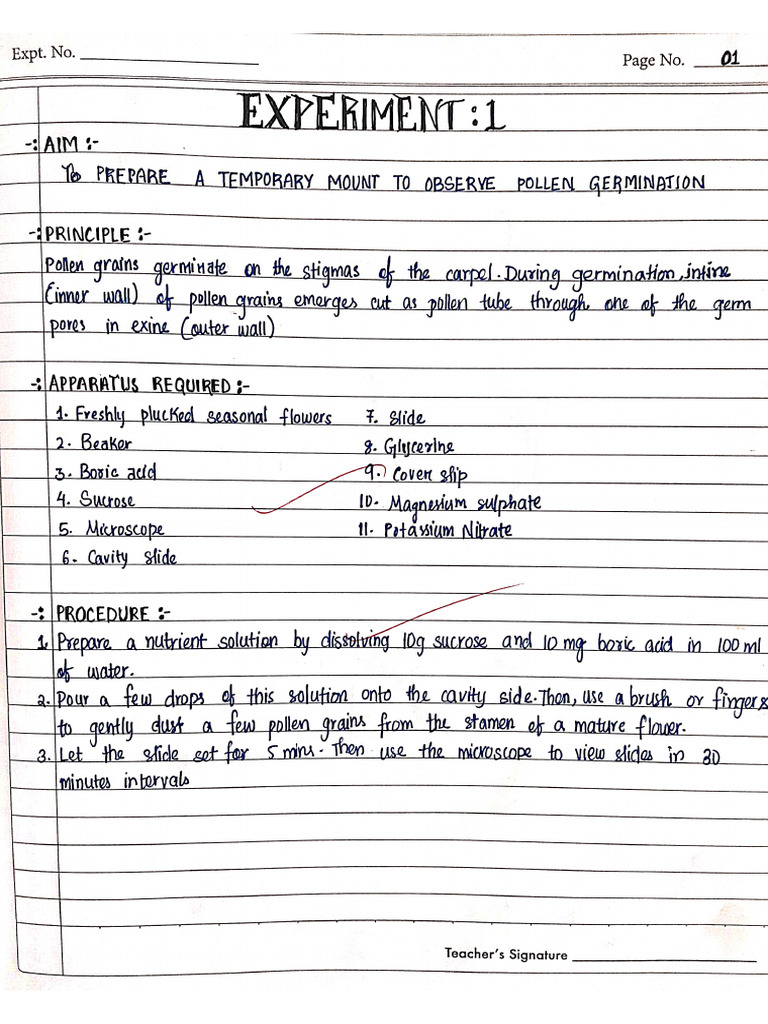 Expt. No.
Page No. 01
EXPERIMENT : 1
-: AIM :-
To PREPARE A TEMPORARY MOUNT TO OBSERVE POLLEN GERMINATION
-: PRINCIPLE :-
Pollen grains germinate on the stigmas of the carpel. During germination, intine
(inner wall) of pollen grains emerges out as pollen tube through one of the germ
pores in exine (outer wall)
-: APPARATUS REQUIRED :-
1. Freshly plucked seasonal flowers 7. Slide
2. Beaker 8. Glycerine
3. Boric acid 9. Cover slip
4. Sucrose 10. Magnesium sulphate
5. Microscope 11. Potassium Nitrate
6. Cavity slide
-: PROCEDURE :-
1. Prepare a nutrient solution by dissolving 10g sucrose and 10 mg boric acid in 100 ml
of water.
2. Pour a few drops of this solution onto the cavity side. Then, use a brush or fingers
to gently dust a few pollen grains from the stamen of a mature flower.
3. Let the slide set for 5 mins. Then use the microscope to view slides in 30
minutes intervals
Teacher's Signature